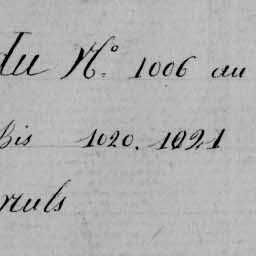 du N.° 1006 au
bis 1020. 1021